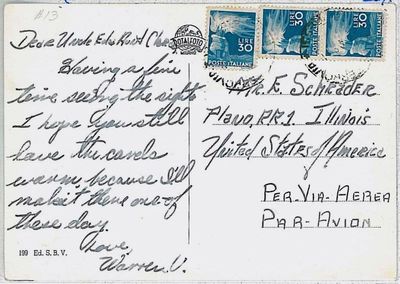 #13
Dear Uncle Ed &
Having a fine
time seeing the sights
I hope you still
have the cards
warm, because I'll
make it there one of
these day.
Love,
Warren V.
199 Ed. S. B. V.
TOTALFOTO
LIRE 30
POSTE ITALIANE
LIRE 30
POSTE ITALIANE
LIRE 30
POSTE ITALIANE
Mr. E. Schrader
Plano, R.R.1 Illinois
United States of America
Per. Via-Aerea
Par-Avion